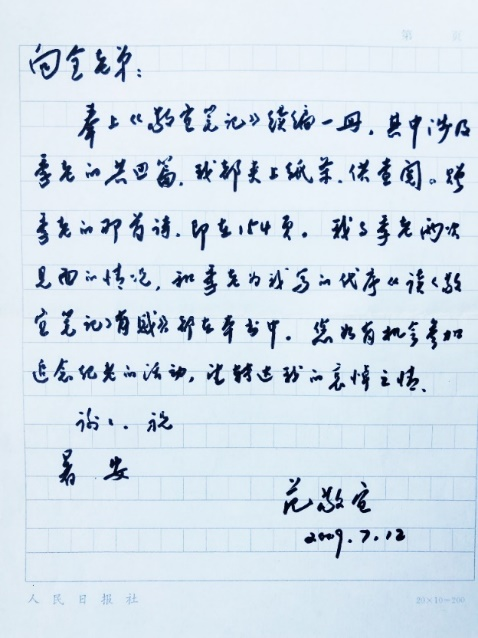 第 页
向全老弟:
奉上《敬宜笔记》续编一册,其中涉及
季老的共四篇,我都夹上纸条,供查阅。赠
季老的那首诗,即在154页。我与季老两次
见面的情况,和季老为我写的代序《读〈敬
宜笔记〉有感》都在本书中。您如有机会参加
追念纪老的活动,望转达我的哀悼之情。
谢谢。祝
暑安
范敬宜
2009.7.12
人民日报社
20×10=200